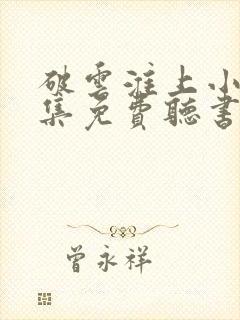 破雲淮上小
集免費聽書
曾永祥